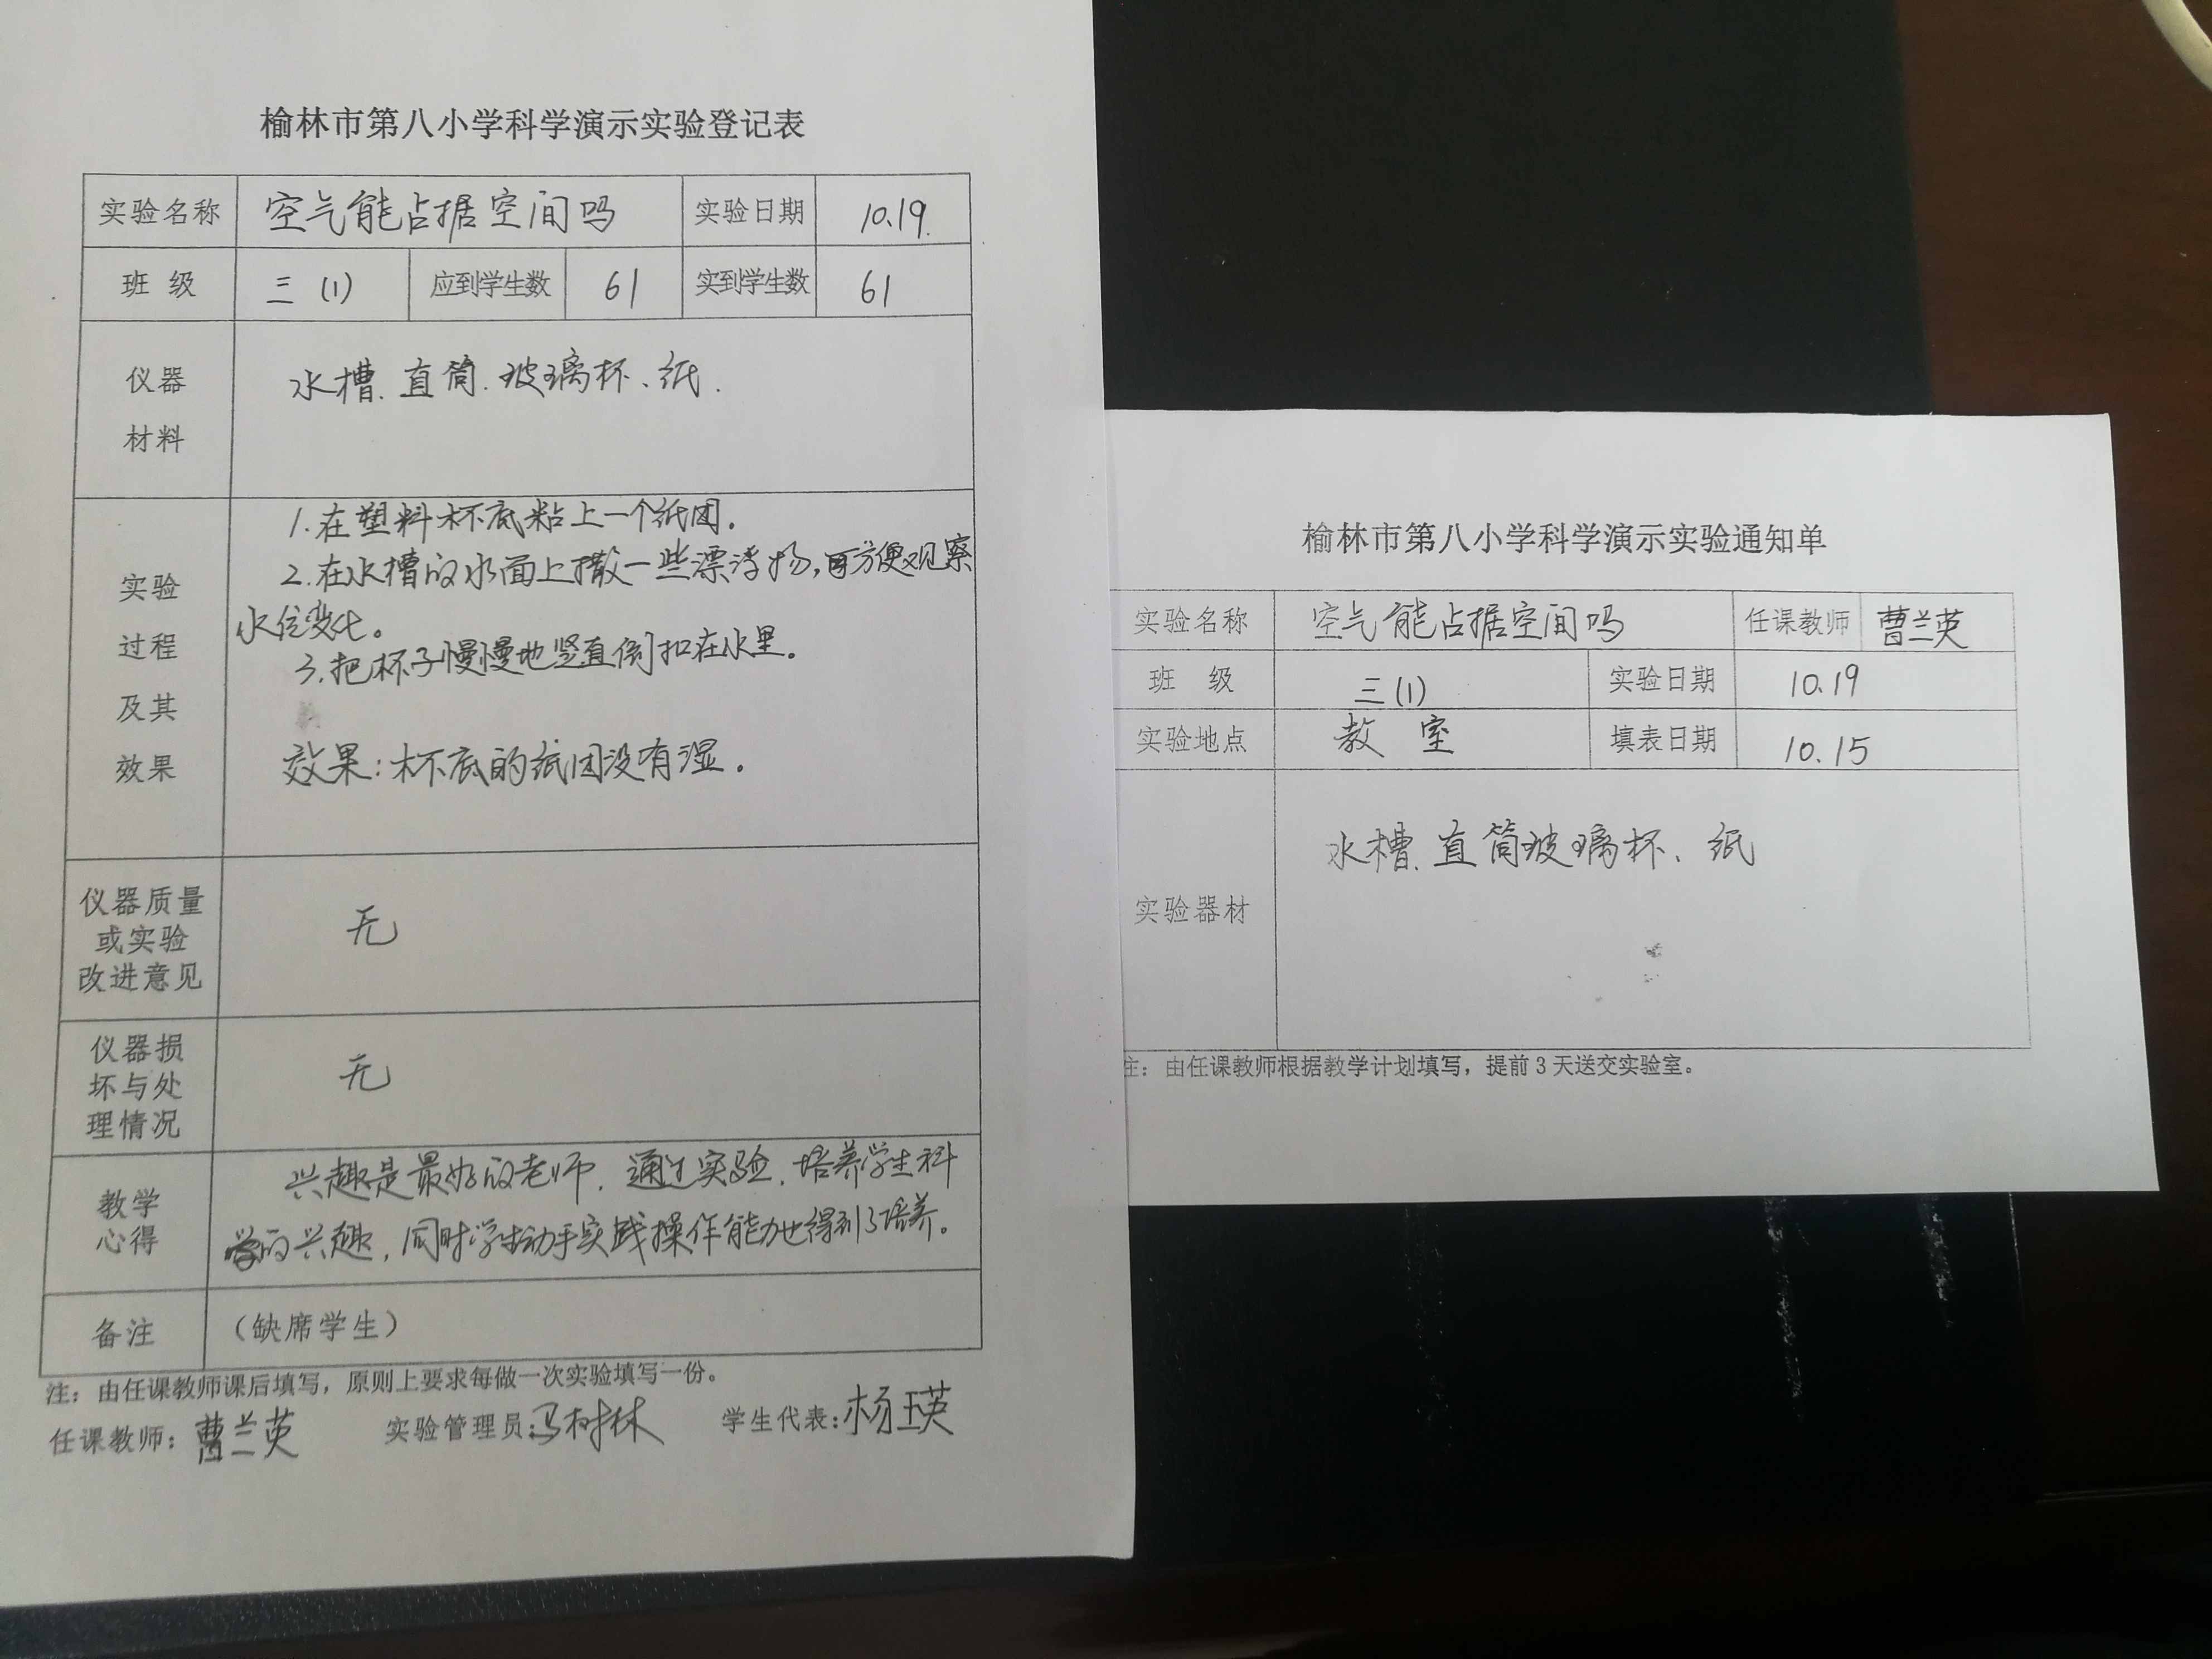 榆林市第八小学科学演示实验登记表
实验名称 空气能占据空间吗 实验日期 10.19.
班 级 三(1) 应到学生数 61 实到学生数 61
仪器
材料
水槽.直筒.玻璃杯、纸.
实验
过程
及其
效果
1.在塑料杯底粘上一个纸团。
2.在水槽的水面上撒一些漂浮物,可方便观察
水位变化。
3.把杯子慢慢地竖直倒扣在水里。
效果:杯底的纸团没有湿。
仪器质量
或实验
改进意见
无
仪器损
坏与处
理情况
无
教学
心得
兴趣是最好的老师.通过实验.培养学生科
学的兴趣,同时学生动手实践操作能力也得到了培养。
备注 (缺席学生)
注:由任课教师课后填写,原则上要求每做一次实验填写一份。
任课教师:曹兰英 实验管理员:冯树林 学生代表:杨瑛
榆林市第八小学科学演示实验通知单
实验名称 空气能占据空间吗 任课教师 曹兰英
班 级 三(1) 实验日期 10.19
实验地点 教 室 填表日期 10.15
实验器材 水槽.直筒玻璃杯、纸
注:由任课教师根据教学计划填写,提前3天送交实验室。